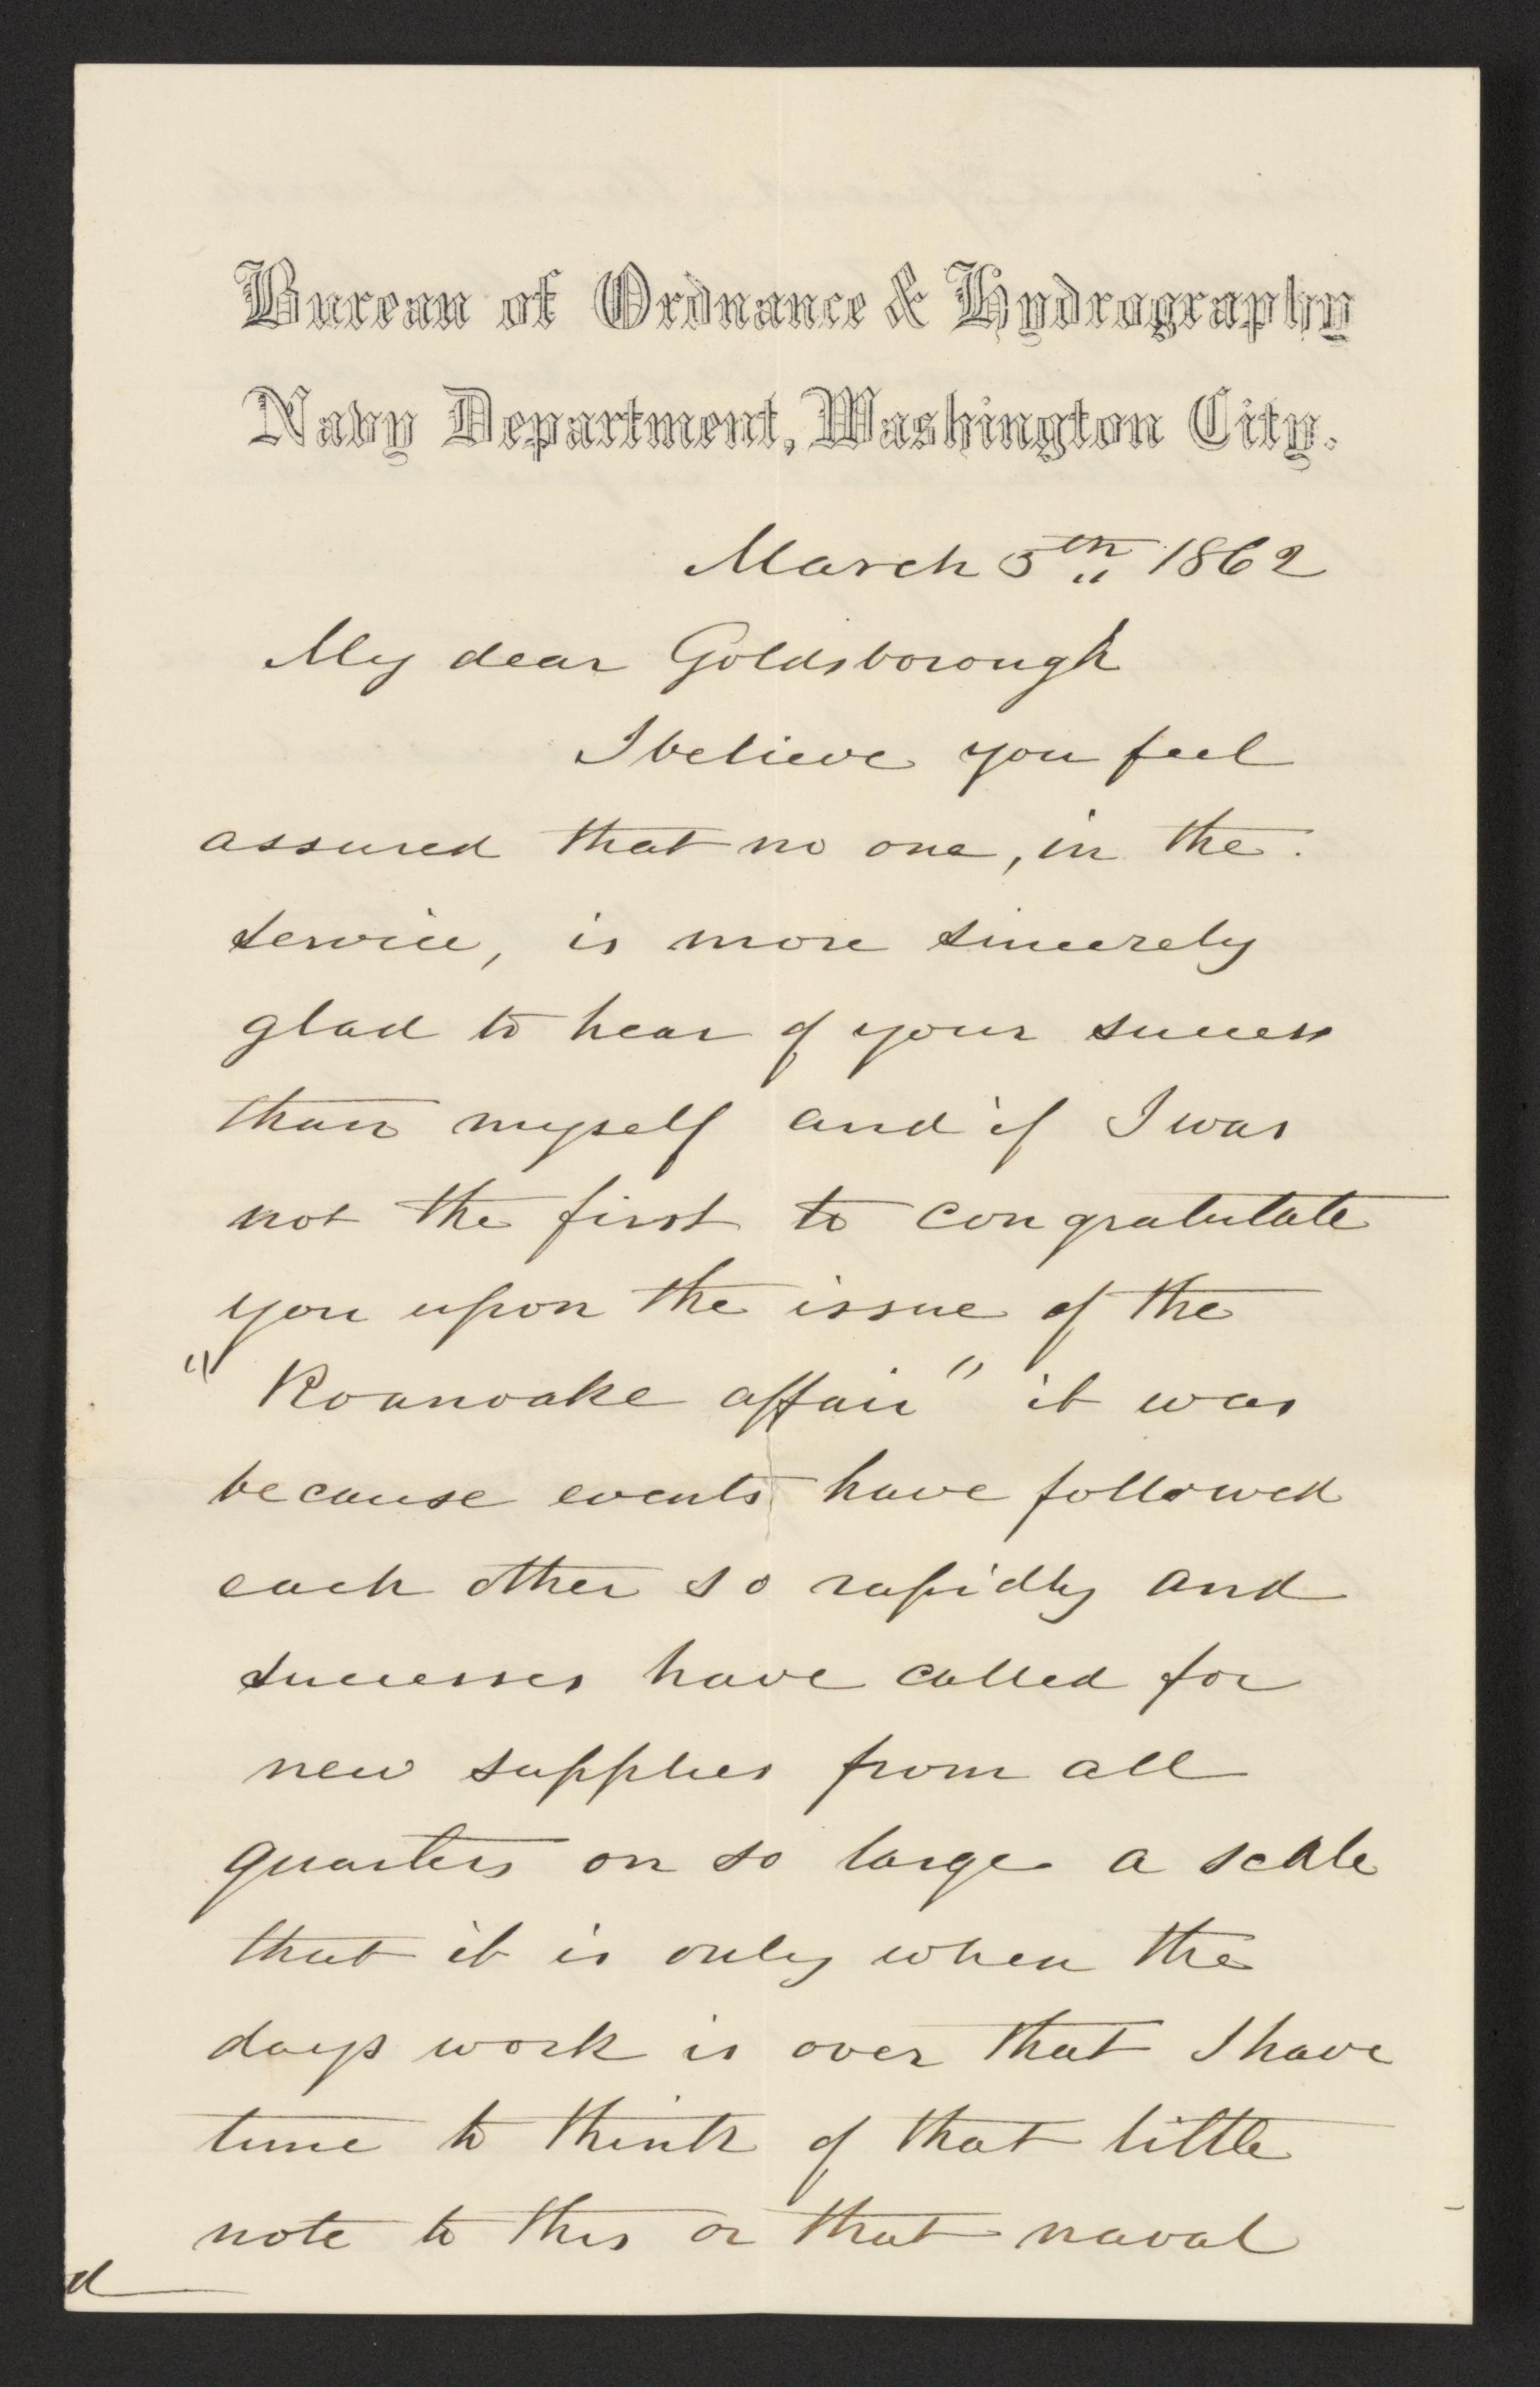 Bureau of Ordnance & Hydrography
Navy Department, Washington City.
March 5th 1862
My dear Goldsborough
I believe you feel
assured that no one, in the
service, is more sincerely
glad to hear of your success
than myself and if I was
not the first to congratulate
you upon the issue of the
"Roanoake affair" it was
because events have followed
each other so rapidly and
successes have called for
new supplies from all
quarters on so large a scale
that it is only when the
days work is over that I have
time to think of that little
note to this or that naval
d